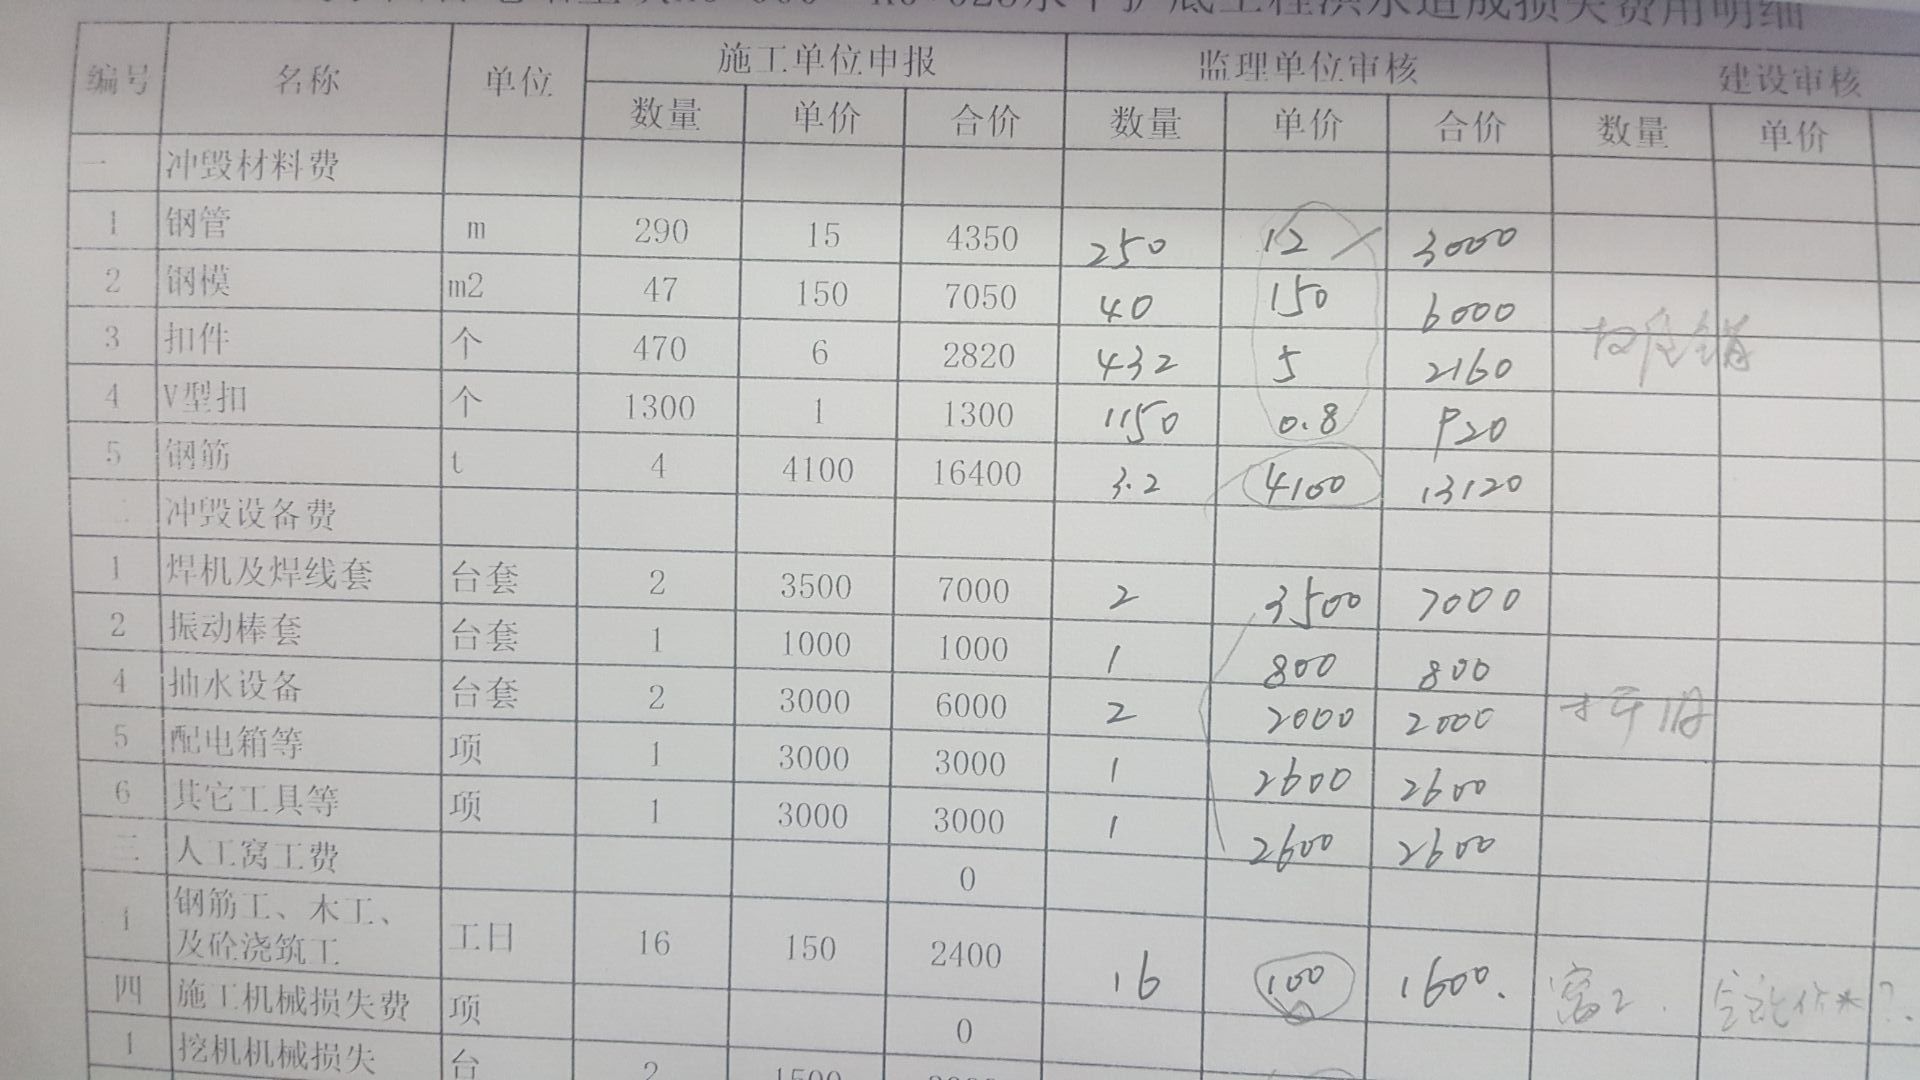 水平扩底工程洪水造成损失费用明细
编号 名称 单位 施工单位申报 监理单位审核 建设审核
数量 单价 合价 数量 单价 合价 数量 单价
一 冲毁材料费
1 钢管 m 290 15 4350 250 12 3000
2 钢模 m2 47 150 7050 40 150 6000
3 扣件 个 470 6 2820 432 5 2160
4 V型扣 个 1300 1 1300 1150 0.8 920
5 钢筋 t 4 4100 16400 3.2 4100 13120
二 冲毁设备费
1 焊机及焊线套 台套 2 3500 7000 2 3500 7000
2 振动棒套 台套 1 1000 1000 1 800 800
4 抽水设备 台套 2 3000 6000 2 2000 2000
5 配电箱等 项 1 3000 3000 1 2600 2600
6 其它工具等 项 1 3000 3000 1 2600 2600
三 人工窝工费 0
1 钢筋工、木工、
及砼浇筑工 工日 16 150 2400 16 100 1600.
四 施工机械损失费 项 0
1 挖机机械损失 台 2 1500